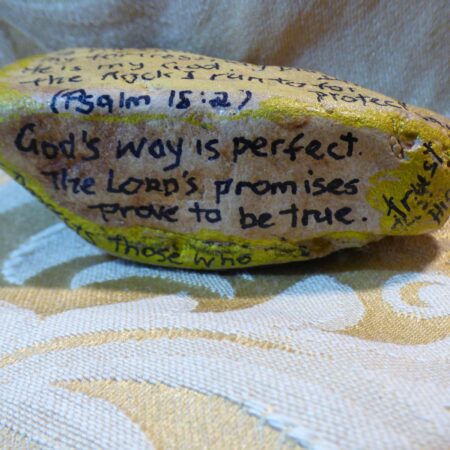 He is my God
the Rock I run to for
Protect
(Psalm 18:2)
God's way is perfect.
The LORD's promises
prove to be true.
those who
trust